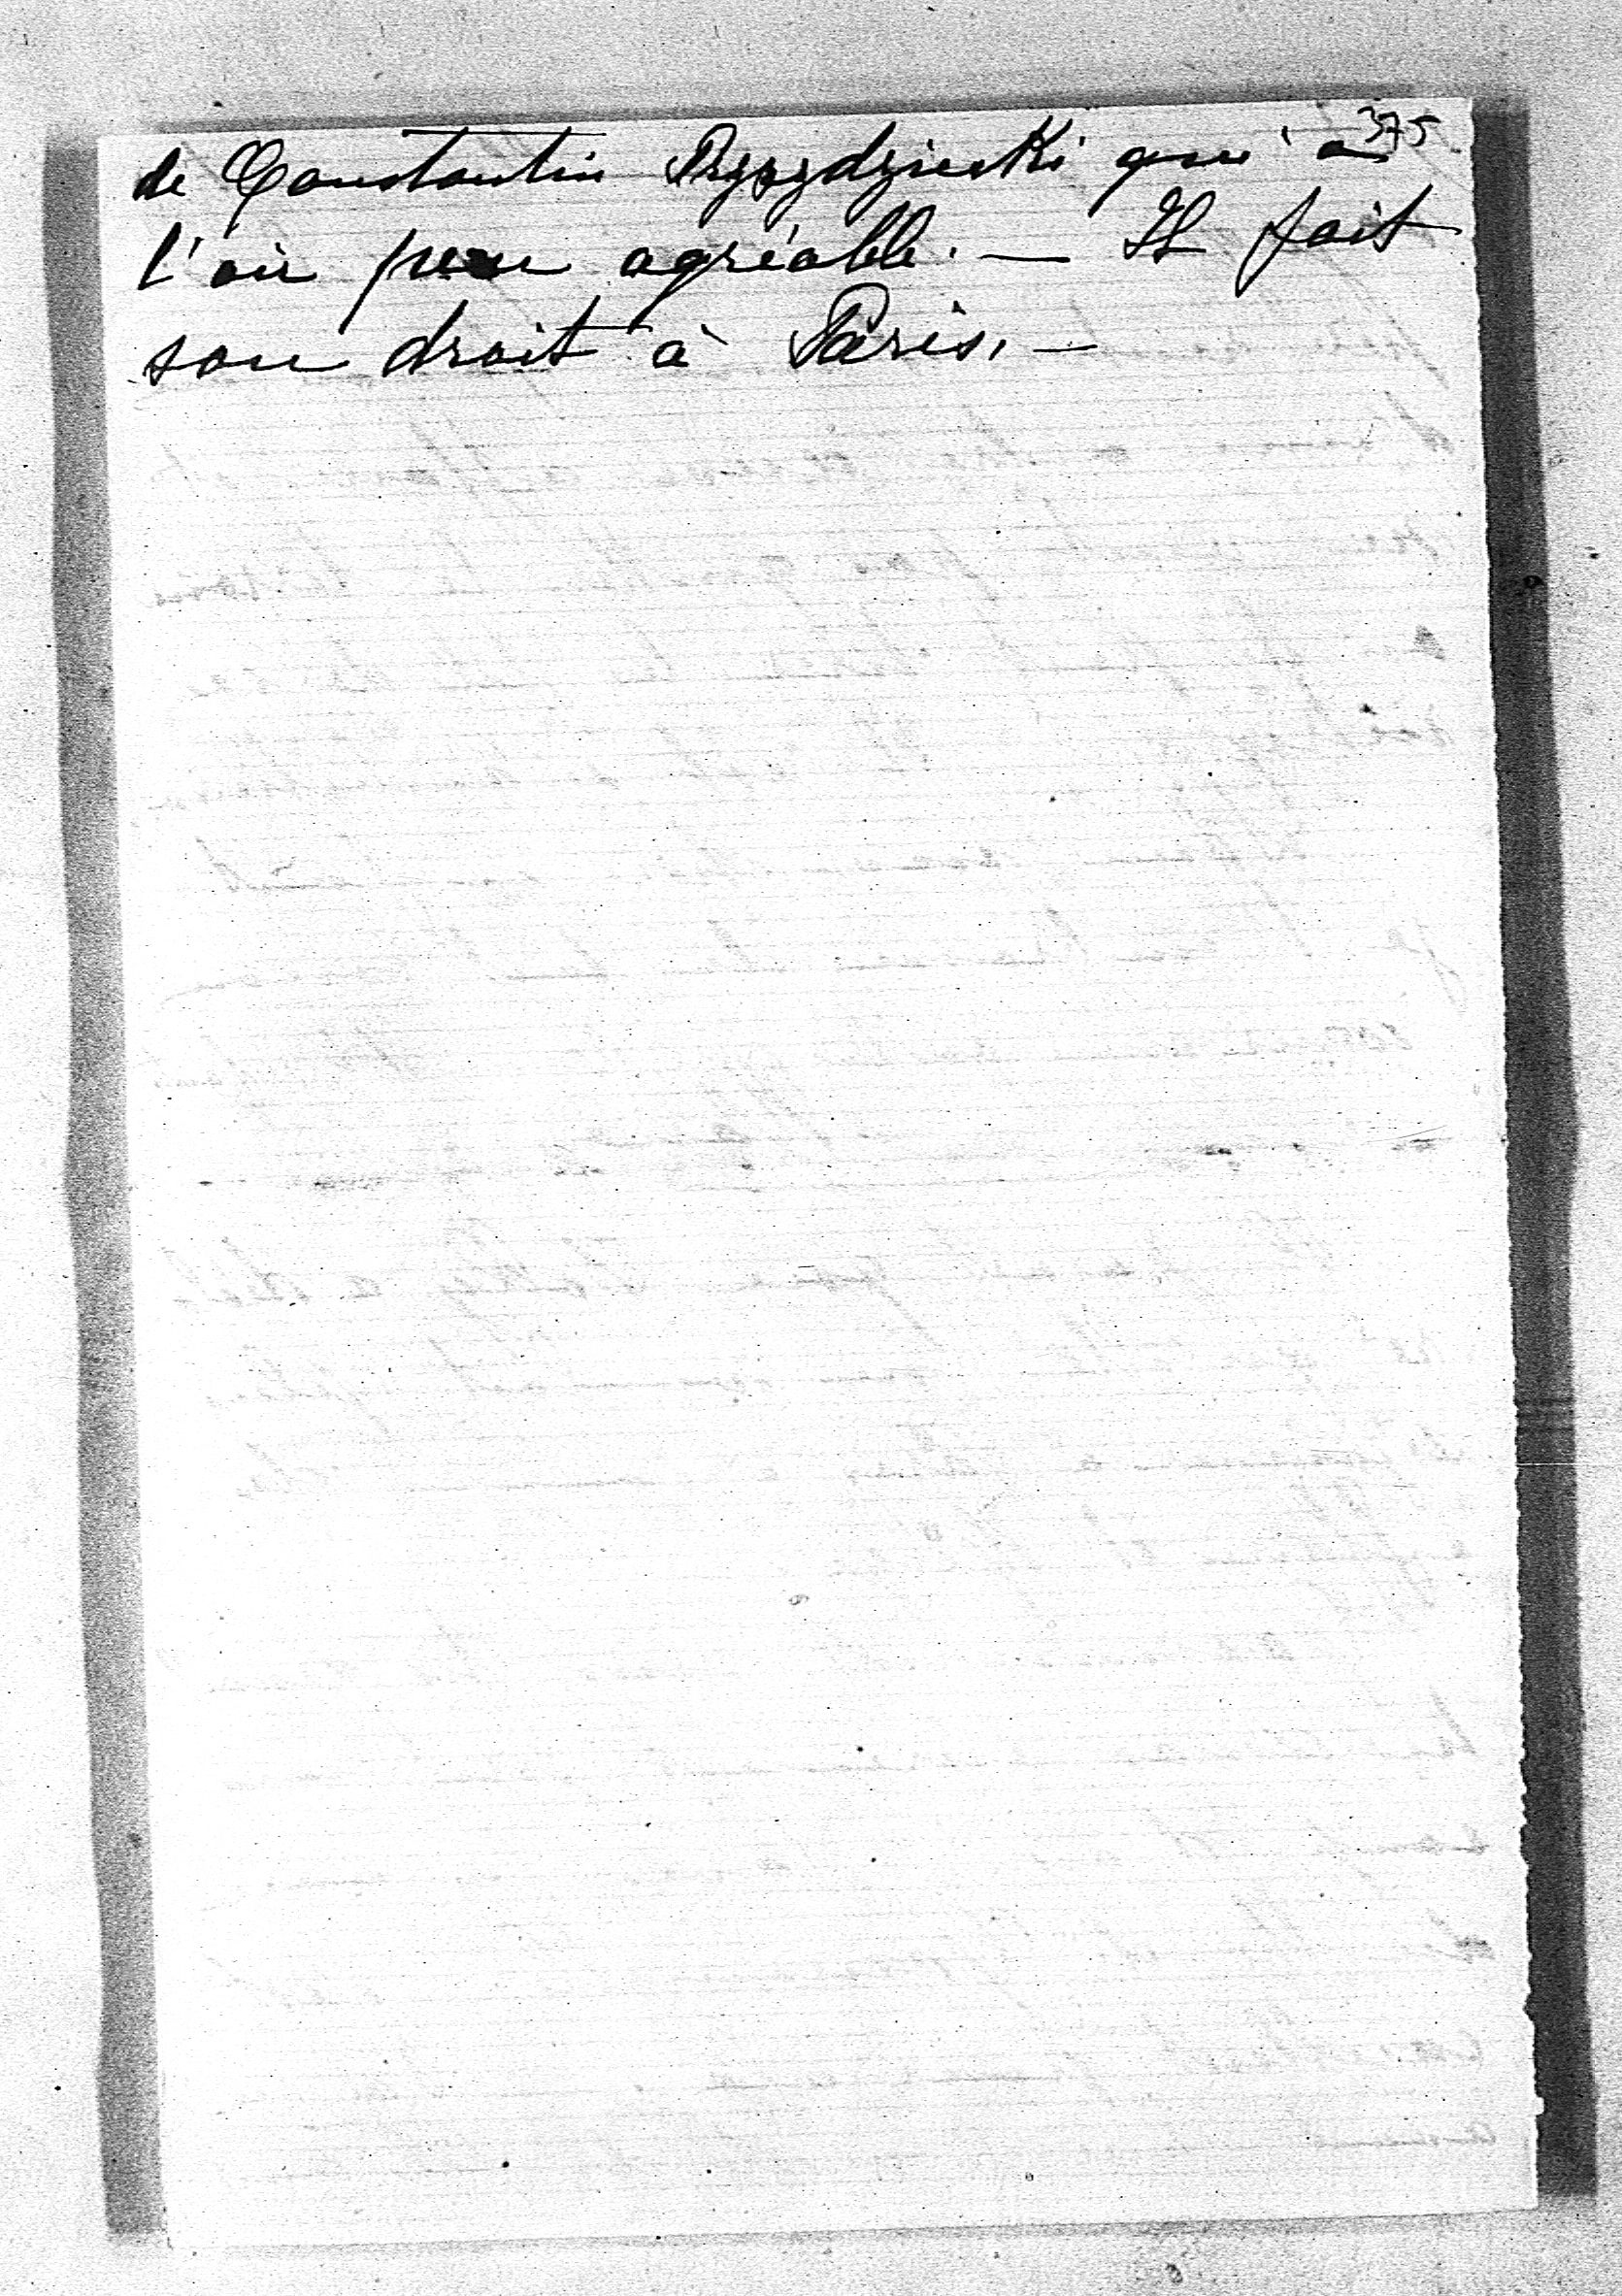 375
de Constantin Przezdziecki qui a
l'air peu agréable. — Il fait
son droit à Paris. —